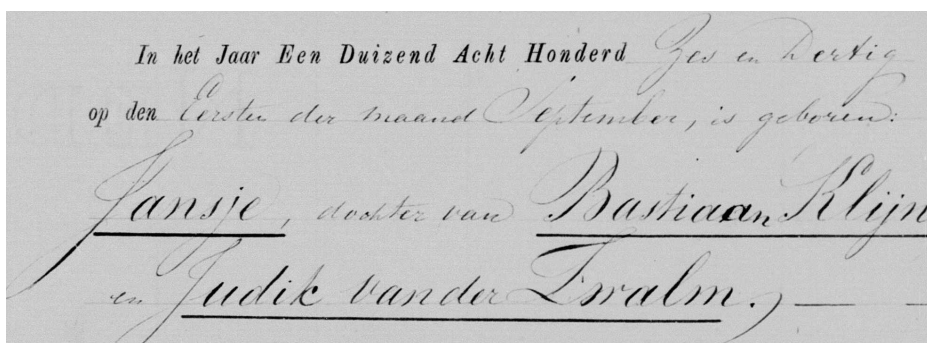 In het Jaar Een Duizend Acht Honderd Zes en Dertig
op den Eersten der maand September, is geboren:
Jansje, dochter van Bastiaan Klijn
en Judik van der Zwalm.